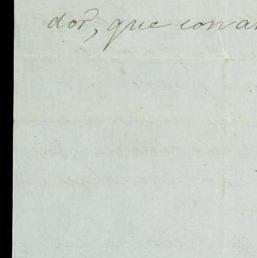 dor, que con a